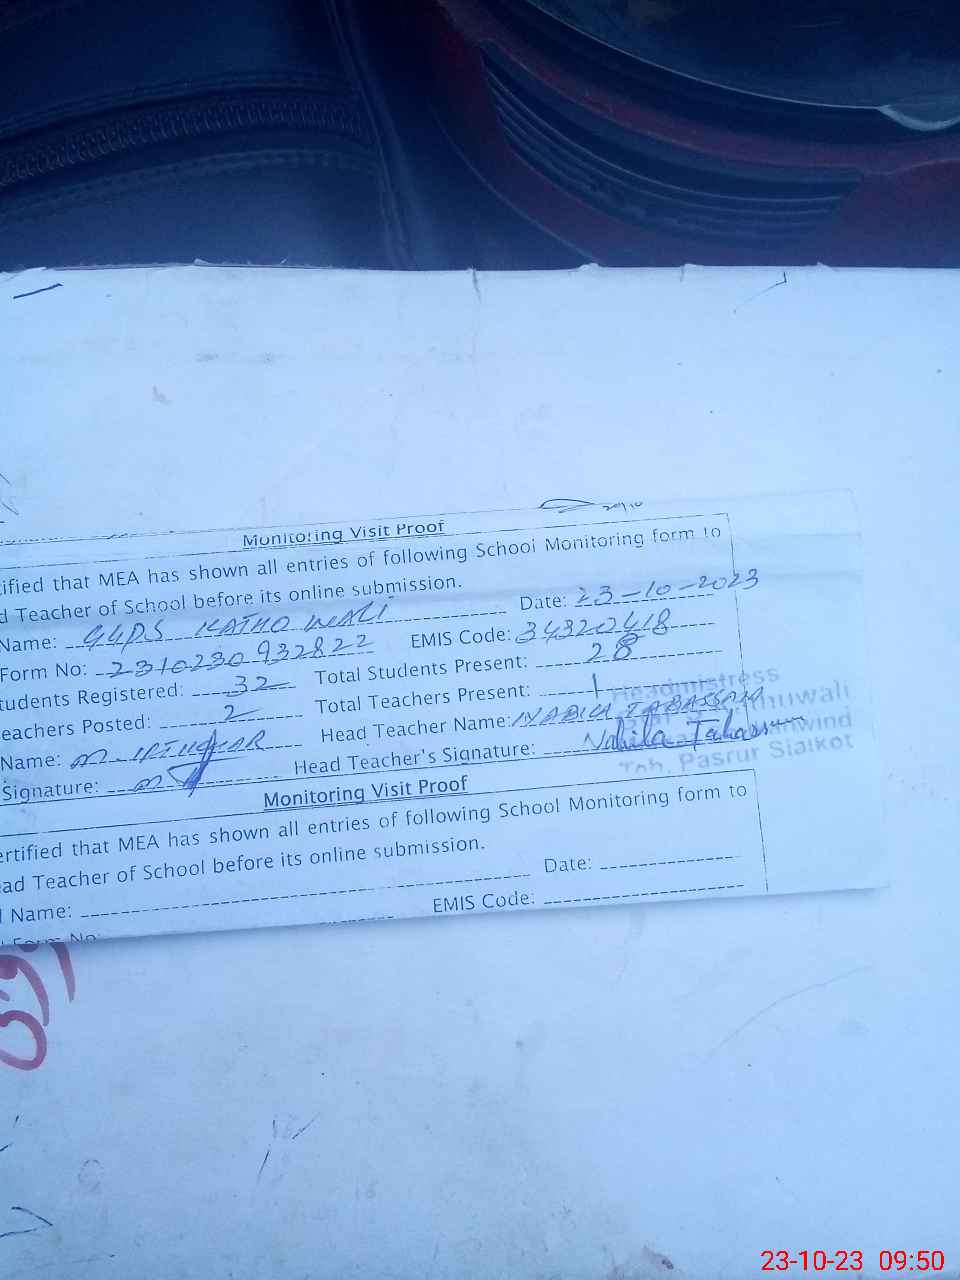 Monitoring Visit Proof
ified that MEA has shown all entries of following School Monitoring form to
d Teacher of School before its online submission.
Name: GGPS KATHO WALI Date: 23-10-2023
Form No: 2310230932822 EMIS Code: 34320418
tudents Registered: 32 Total Students Present: 28
eachers Posted: 2 Total Teachers Present: 1
Name: M. IFTIKHAR Head Teacher Name: NABILA TABASSAM
Signature: Head Teacher's Signature: Nabila Tabassum
Headmistress
Teh. Pasrur Sialkot
Monitoring Visit Proof
ertified that MEA has shown all entries of following School Monitoring form to
ead Teacher of School before its online submission.
l Name: Date:
Form No: EMIS Code:
23-10-23 09:50